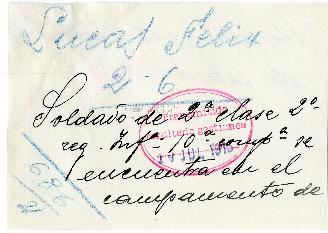 Lucas Felix
2-6
Soldado de 2ª clase 2º
reg. Infª 10ª compª se
encuentra en el
campamento de
686
JUL 1915